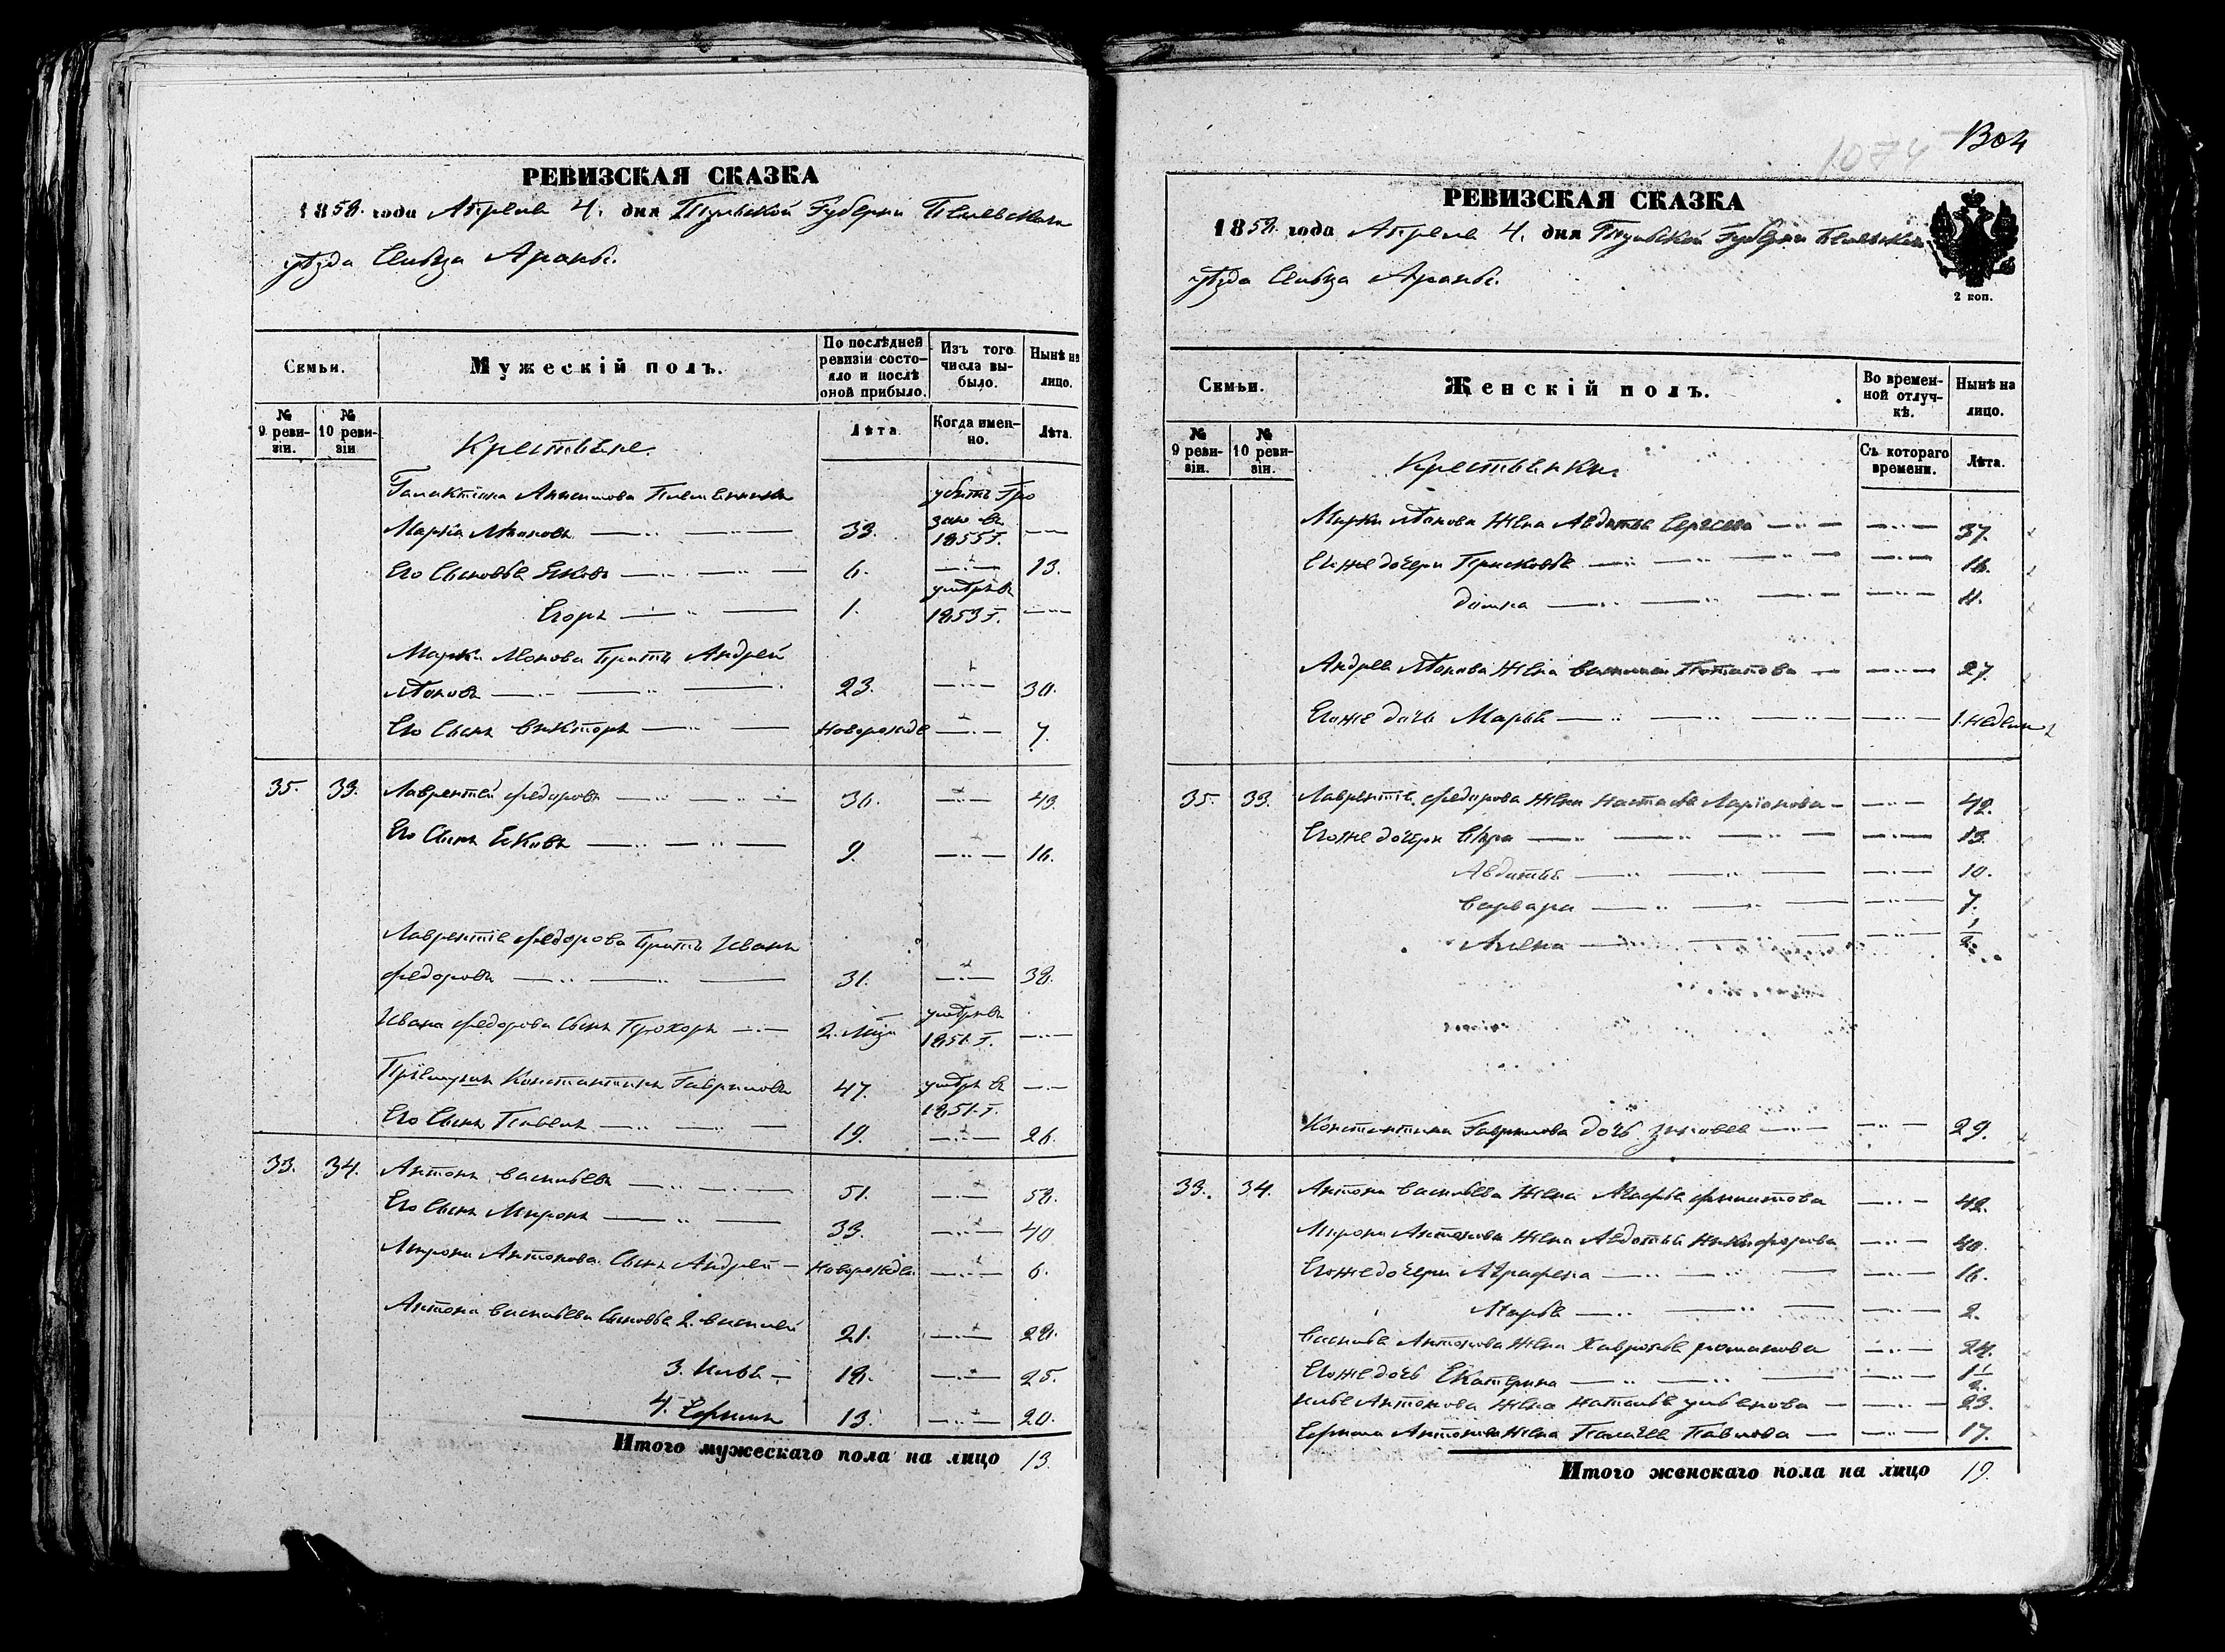 РЕВИЗСКАЯ СКАЗКА
1858 года Апреля 4. дня Тульской Губернии Белевскаго
уѣзда Сельца
Семьи.
Мужескій полъ.
По послѣдней ревизіи состояло и послѣ оной прибыло.
Изъ того числа выбыло.
Нынѣ на лицо.
№ 9 ревизіи.
№ 10 ревизіи
Крестьяне.
Лѣта
Когда именно.
Лѣта.
Галактіона племянникъ убитъ гро
Марка 33. зою въ 1855 г.
Его Сыновья Яковъ 6. 13.
Егоръ 1. умеръ въ 1853 г.
Марка братъ Андрей
23. 30.
Его Сынъ Викторъ новорожде 7.
35. 33. Лаврентей Федоровъ 36. 43.
Его Сынъ Яковъ 9. 16.
Лаврентія Федорова братъ Иванъ
Федоровъ 31. 38.
Ивана Федорова Сынъ Прохоръ 2. умеръ въ 1851 г.
Пріемышъ Константинъ Гавриловъ 47. умеръ въ 1851. г.
Его Сынъ Павелъ 19. 26.
33. 34. Антонъ Васильевъ 51. 58.
Его Сынъ Миронъ 33. 40
Мирона Антонова Сынъ Андрей новорожде 6.
Антона Васильева Сыновья 2. Василей 21. 28.
3. Илья 18. 25.
4. 13. 20.
Итого мужескаго пола на лицо 13.
1074
РЕВИЗСКАЯ СКАЗКА
1858 года Апреля 4. дня Тульской Губернии Белевскаго
уѣзда Сельца
2 коп.
Семьи.
Женскій полъ.
Во временной отлучкѣ.
Нынѣ на лицо.
№ 9 ревизіи.
№ 10 ревизіи.
Крестьянки.
Съ котораго времени.
Лѣта.
Марка жена Авдотья Сергеева 37.
Его же дочери Прасковья 16.
Домна 11.
Андрея жена Потапова 27.
Его же дочь Марья 1. недели
35. 33. Лаврентія Федорова жена Настасья Ларіонова 42.
Его же дочери Вѣра 13.
Авдотья 10.
Варвара 7.
Алена 1/2.
Константина Гаврилова дочь 29.
33. 34. Антона Васильева жена Агафья 42.
Мирона Антонова жена Авдотья Никифорова 40.
Его же дочери Аграфена 16.
Марья 2.
Василья Антонова жена Хавронья Романова 24.
Его же дочь Екатерина 1 1/2.
Ильи Антонова жена Наталья Ульянова 23.
Антонова жена Пелагея Павлова 17.
Итого женскаго пола на лицо 19.